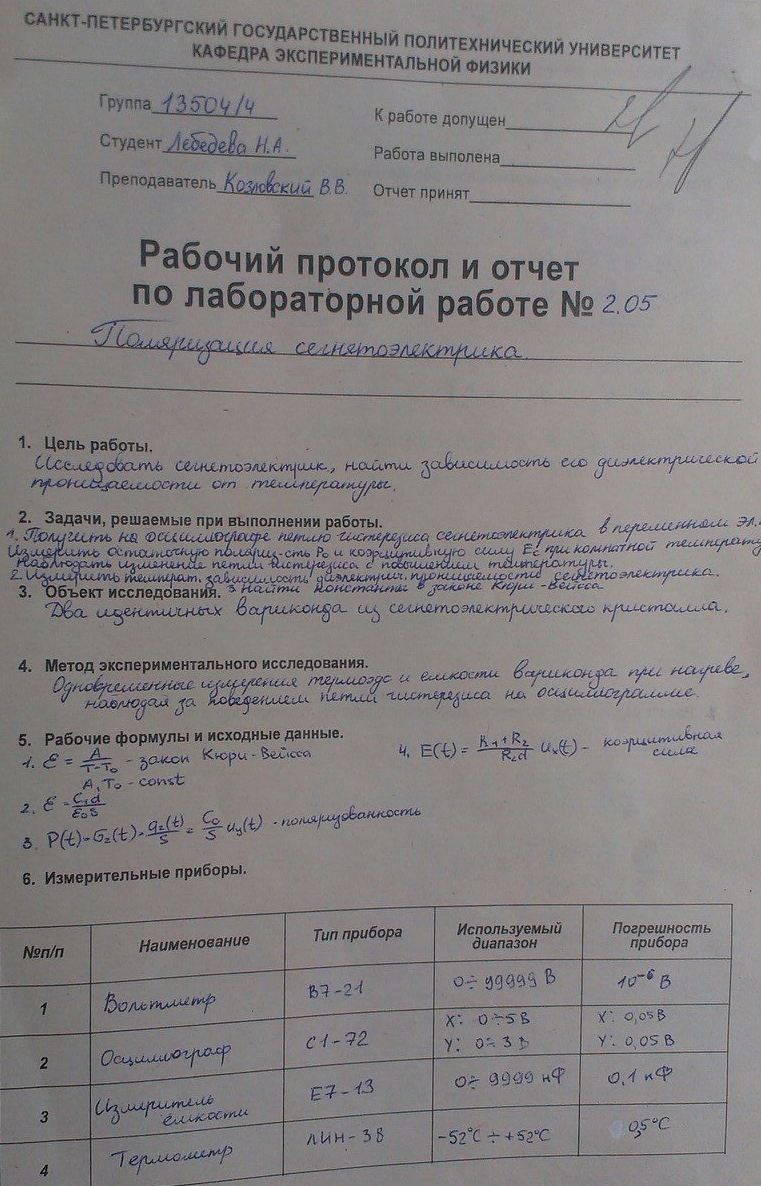 САНКТ-ПЕТЕРБУРГСКИЙ ГОСУДАРСТВЕННЫЙ ПОЛИТЕХНИЧЕСКИЙ УНИВЕРСИТЕТ
КАФЕДРА ЭКСПЕРИМЕНТАЛЬНОЙ ФИЗИКИ
Группа 13504/4
К работе допущен
Студент Лебедева Н.А.
Работа выполена
Преподаватель Козловский В.В.
Отчет принят
Рабочий протокол и отчет
по лабораторной работе № 2.05
Поляризация сегнетоэлектрика
1. Цель работы.
Исследовать сегнетоэлектрик, найти зависимость его диэлектрической
проницаемости от температуры.
2. Задачи, решаемые при выполнении работы.
1. Получить на осциллографе петлю гистерезиса сегнетоэлектрика в переменном эл.
Измерить остаточную поляриз-сть P₀ и коэрцитивную силу Ec при комнатной температу
Наблюдать изменение петли гистерезиса с повышением температуры.
2. Измерить температ. зависимость диэлектрич. проницаемости сегнетоэлектрика.
3. Найти константы в законе Кюри-Вейсса
3. Объект исследования.
Два идентичных вариконда из сегнетоэлектрического кристалла.
4. Метод экспериментального исследования.
Одновременные измерения термоэдс и емкости вариконда при нагреве,
наблюдая за поведением петли гистерезиса на осциллограмме.
5. Рабочие формулы и исходные данные.
1. ε = A/(T-T₀) - закон Кюри-Вейсса
A, T₀ - const
2. ε = C₁d/ε₀S
3. P(t)=σ₂(t)=q₂(t)/S = C₀/S u_y(t) - поляризованность
4. E(t) = (R₁+R₂)/(R₂d) u_x(t) - коэрцитивная
сила
6. Измерительные приборы.
№п/п Наименование Тип прибора Используемый диапазон Погрешность прибора
1 Вольтметр В7-21 0÷99999 В 10⁻⁶ В
2 Осциллограф С1-72 X: 0÷5В Y: 0÷3В X: 0,05В Y: 0,05В
3 Измеритель емкости Е7-13 0÷9999 нФ 0,1 нФ
4 Термометр ЛИН-38 -52°C ÷ +52°C 0,5°C